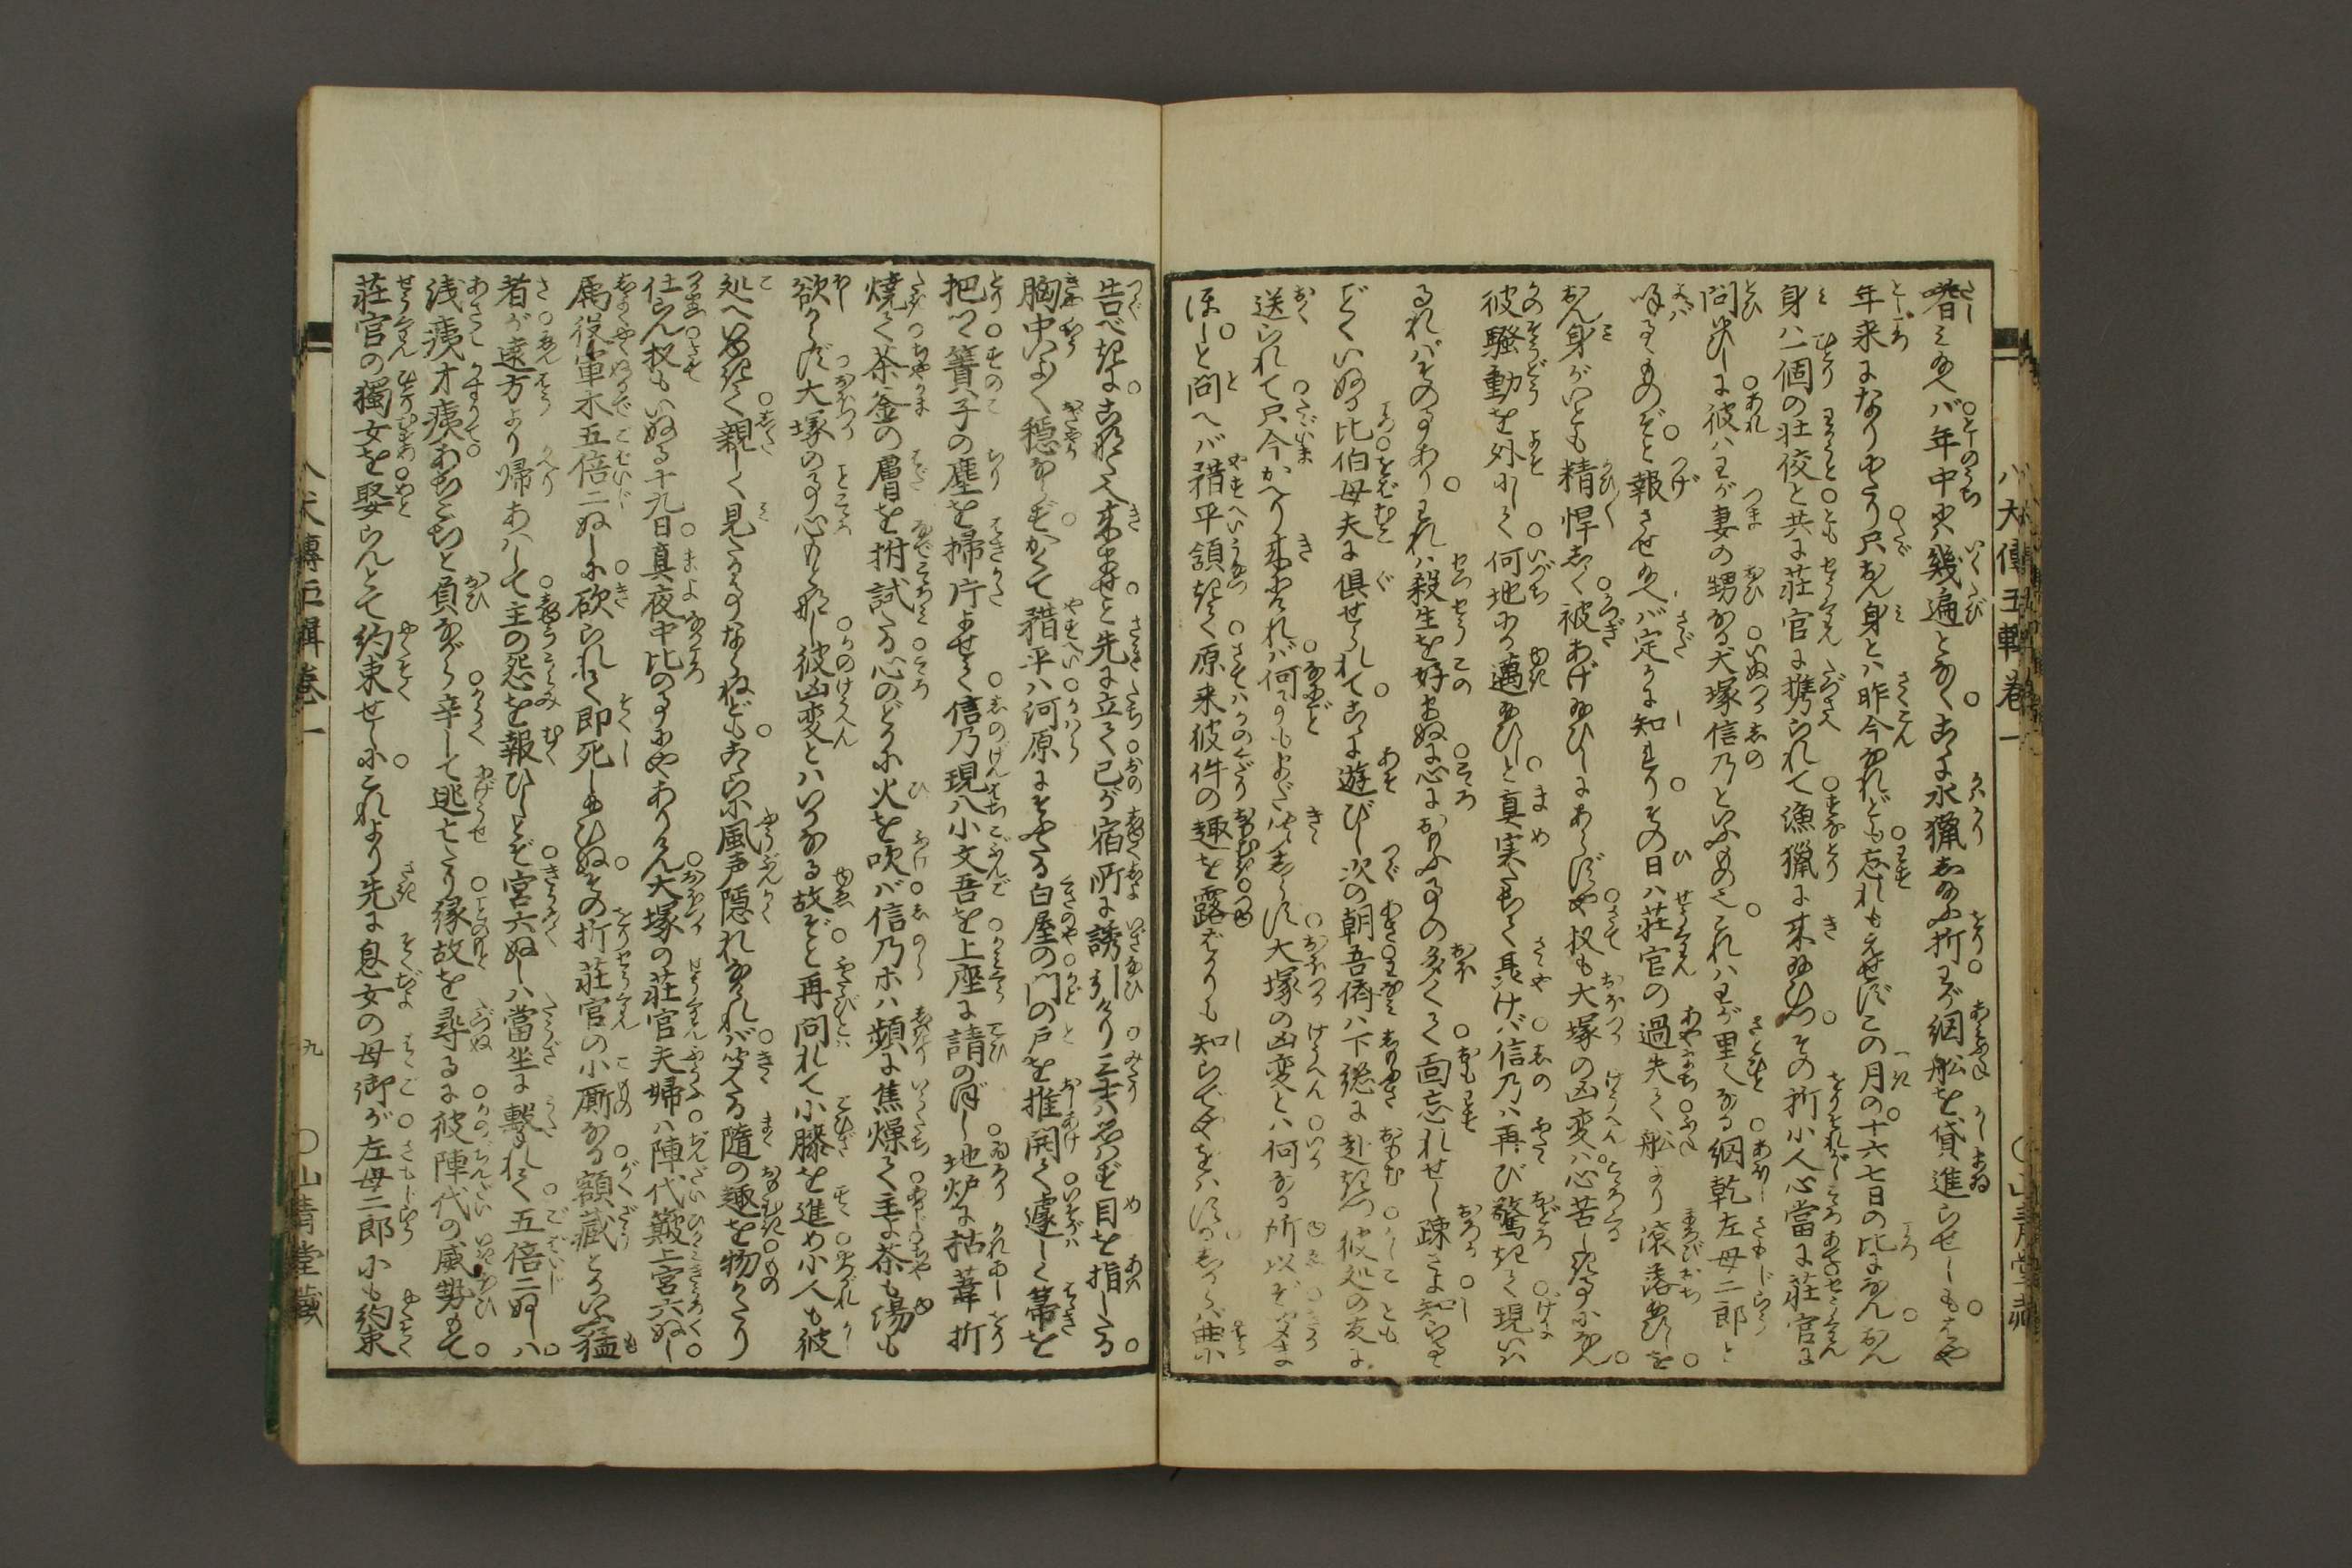 年来になりゆたり只おん身とハ昨今なれども忘れもえせずこの月の十六七日の比になんおん
身ハ一個の荘佼と共に荘官に携られて漁猟に来給ひつその折小人心當に荘官に
問まひしに彼ハわが妻の甥なる犬塚信乃といふもの也これハわが里人なる網乾左母二郎と
呼るゝものぞと報させ給へバ定かに知れりその日ハ荘官の過失て舩より滾落給ひしを
おん身がいとも精悍しく被あげ給ひしにあらずや扠も大塚の凶変ハ心苦しき事になん
彼騒動を外にして何地にか邁給ひしと真実だちて耳語けバ信乃ハ再び驚きて現いハ
るれバその事ありわれハ殺生を好まぬに心におもふ事の多くて面忘れせし疎さよ知らるゝ
どくいぬる比伯母夫に倶せられてこゝに遊びし次の朝吾儕ハ下総に赴きつ彼処の友に
送られて只今かへり来れバ何事もまだ聞しらず大塚の凶変とハ何なる所以ぞ聞まほ
ほしと問へバ𫞄平頷きて原来彼件の趣を露ばかりも知らでやをハするしからバ
告べきによきに入来ませと先に立て己が宿所に誘引けり三犬ハ名ハず目を指したる
胸中いよゝ穏ならずかくて𫞄平ハ河原にそふたる白屋の門の戸を推開て遽しく帚を
把つ簀子の塵を掃片よせて信乃現八小文吾を上座に請のぼし地炉に枯葦折
焼て茶釜の層を拊試たる心のどかに火を吹バ信乃ホハ頻に焦燥て主よ茶も湯も
欲からず大塚の事心もとなし彼凶変とハいかなる故ぞと再問れて小膝を進め小人も彼
処へいゆきて親しく見たる事ならねどもこゝらに風声隠れなけれバ聞る随の趣を物かたり
仕らん扠もいぬる十九日真夜中比の事にやありけん大塚の荘官夫婦ハ陣代簸上宮六ぬし
属役軍木五倍二ぬしに砍られて即死し給ひぬその折荘官の小厮なる額藏とかいふ猛
者が遠方より帰あハして主の怨を報ひしとぞ宮六ぬしハ當坐に撃れて五倍二ぬしハ
浅痍才痍おちこちと負ながら辛して逃亡たり縁故を尋るに彼陣代の威勢もて
荘官の獨女を娶らんとて約束せしにこれより先に息女の母御が左母二郎にも約束
八犬傳五輯巻一
九
〇山青堂藏
八犬傳五輯巻一
〇山青堂藏